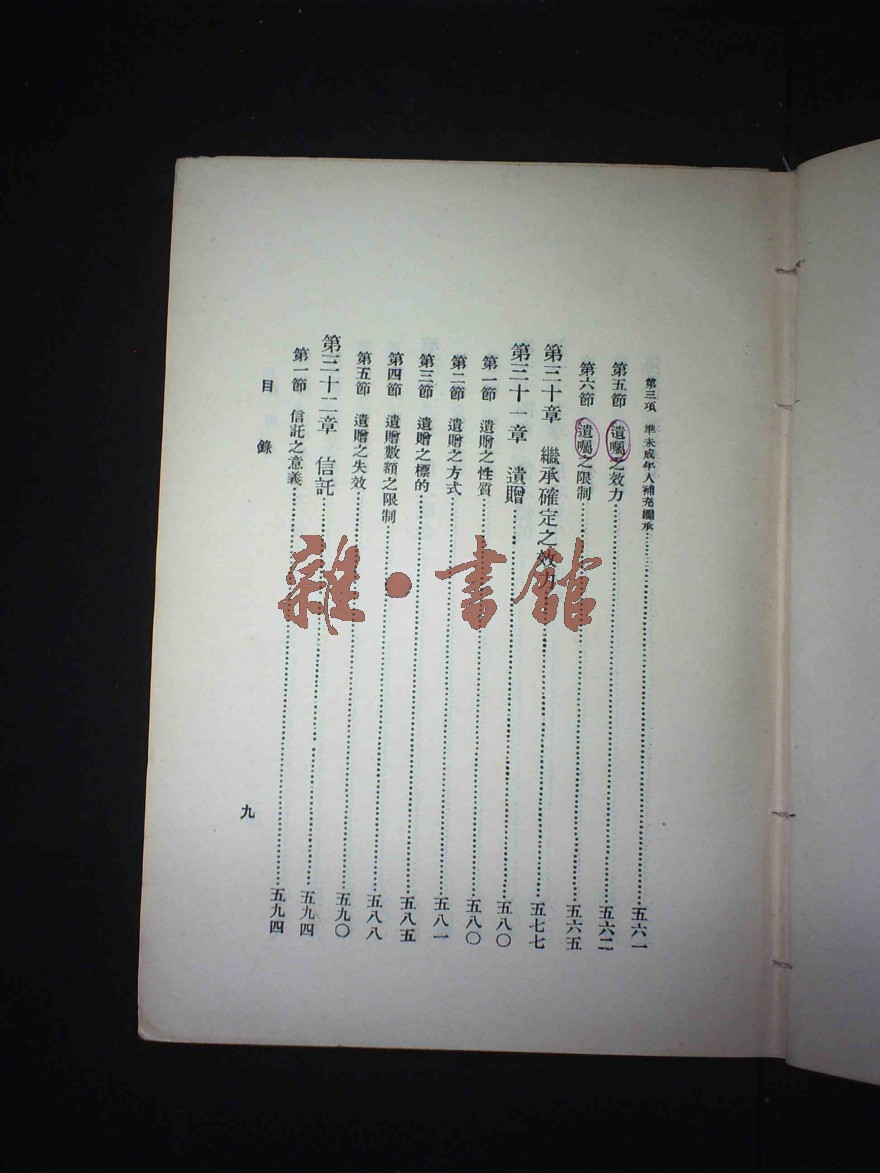 第三項　準未成年人補充繼承……五六一
第五節　遺囑之效力……五六二
第六節　遺囑之限制……五六五
第三十章　繼承確定之效力……五七七
第三十一章　遺贈……五八〇
第一節　遺贈之性質……五八〇
第二節　遺贈之方式……五八一
第三節　遺贈之標的……五八五
第四節　遺贈數額之限制……五八八
第五節　遺贈之失效……五九〇
第三十二章　信託……五九四
第一節　信託之意義……五九四
目錄
九
雜·書館